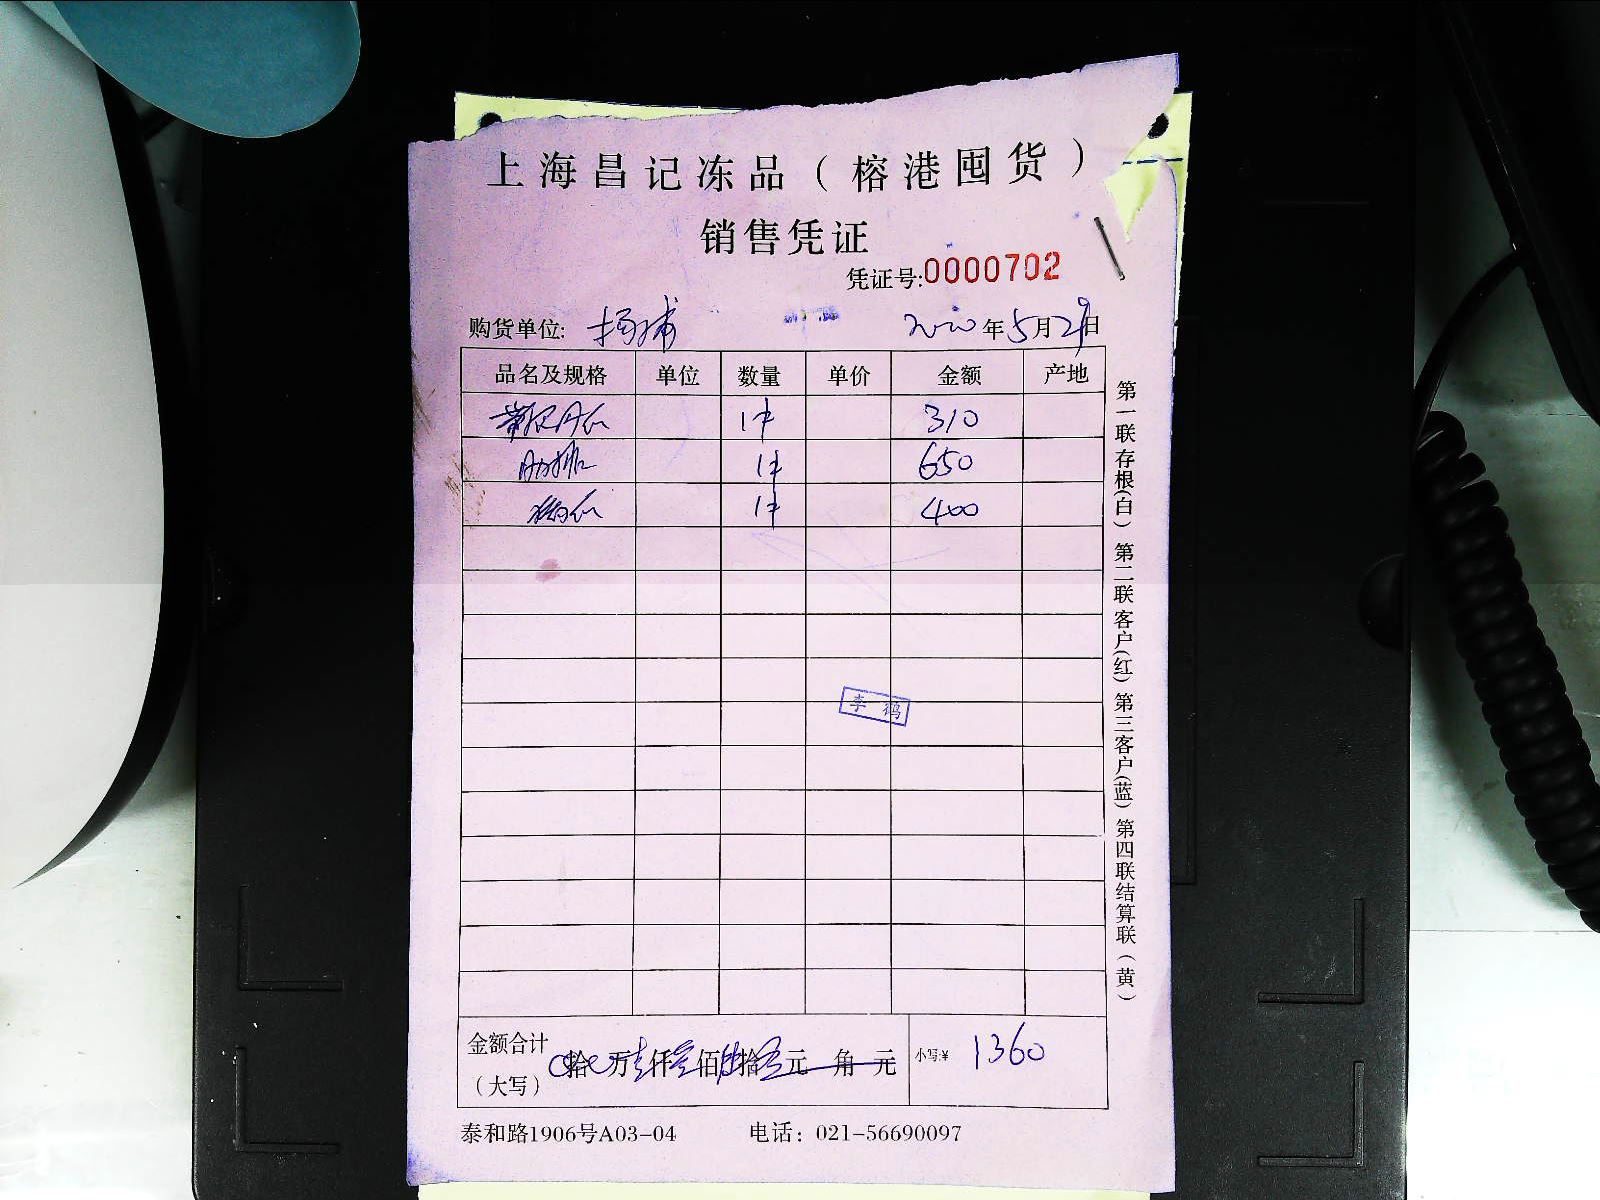 上海昌记冻品（榕港囤货）
销售凭证
凭证号:0000702
购货单位: 杨浦 2020年5月29日
品名及规格 单位 数量 单价 金额 产地
1件 310
肋排 1件 650
1件 400
李鹤
金额合计（大写） 拾 万壹仟叁佰陆拾 元 角 元 小写:¥ 1360
泰和路1906号A03-04 电话：021-56690097
第一联存根(白) 第二联客户(红) 第三客户(蓝) 第四联结算联(黄)